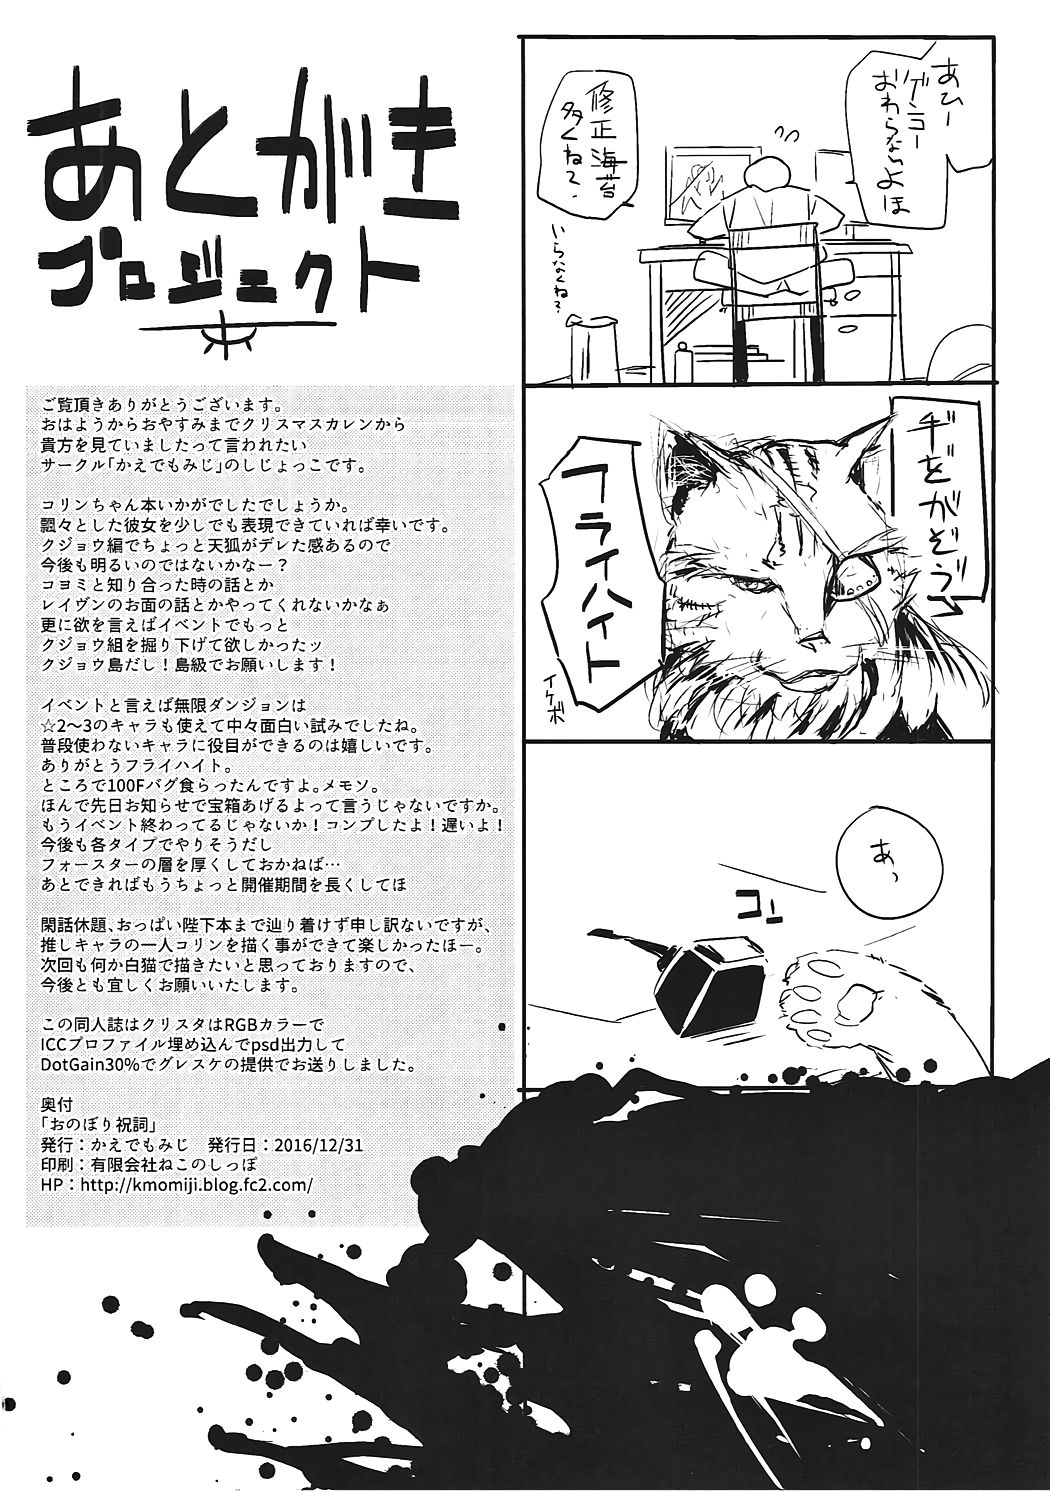 あとがき
プロジェクト
ご覧頂きありがとうございます。
おはようからおやすみまでクリスマスカレンから
貴方を見ていましたって言われたい
サークル「かえでもみじ」のしじょっこです。
コリンちゃん本いかがでしたでしょうか。
飄々とした彼女を少しでも表現できていれば幸いです。
クジョウ編でちょっと天狐がデレた感あるので
今後も明るいのではないかなー？
コヨミと知り合った時の話とか
レイヴンのお面の話とかやってくれないかなぁ
更に欲を言えばイベントでもっと
クジョウ組を掘り下げて欲しかったッ
クジョウ島だし！島級でお願いします！
イベントと言えば無限ダンジョンは
☆2～3のキャラも使えて中々面白い試みでしたね。
普段使わないキャラに役目ができるのは嬉しいです。
ありがとうフライハイト。
ところで100Fバグ食らったんですよ。メモン。
ほんで先日お知らせで宝箱あげるよって言うじゃないですか。
もうイベント終わってるじゃないか！コンプしたよ！遅いよ！
今後も各タイプでやりそうだし
フォースターの層を厚くしておかねば…
あとできればもうちょっと開催期間を長くしてほ
閑話休題、おっぱい陛下本まで辿り着けず申し訳ないですが、
推しキャラの一人コリンを描く事ができて楽しかったほー。
次回も何か白猫で描きたいと思っておりますので、
今後とも宜しくお願いいたします。
この同人誌はクリスタはRGBカラーで
ICCプロファイル埋め込んでpsd出力して
DotGain30%でグレスケの提供でお送りしました。
奥付
「おのぼり祝詞」
発行：かえでもみじ　発行日：2016/12/31
印刷：有限会社ねこのしっぽ
HP：http://kmomiji.blog.fc2.com/
あひー
ゲンコー
おわらないよほ
修正海苔
多くね？
いらなくね？
フライハイト
イケボ
あっ
コン